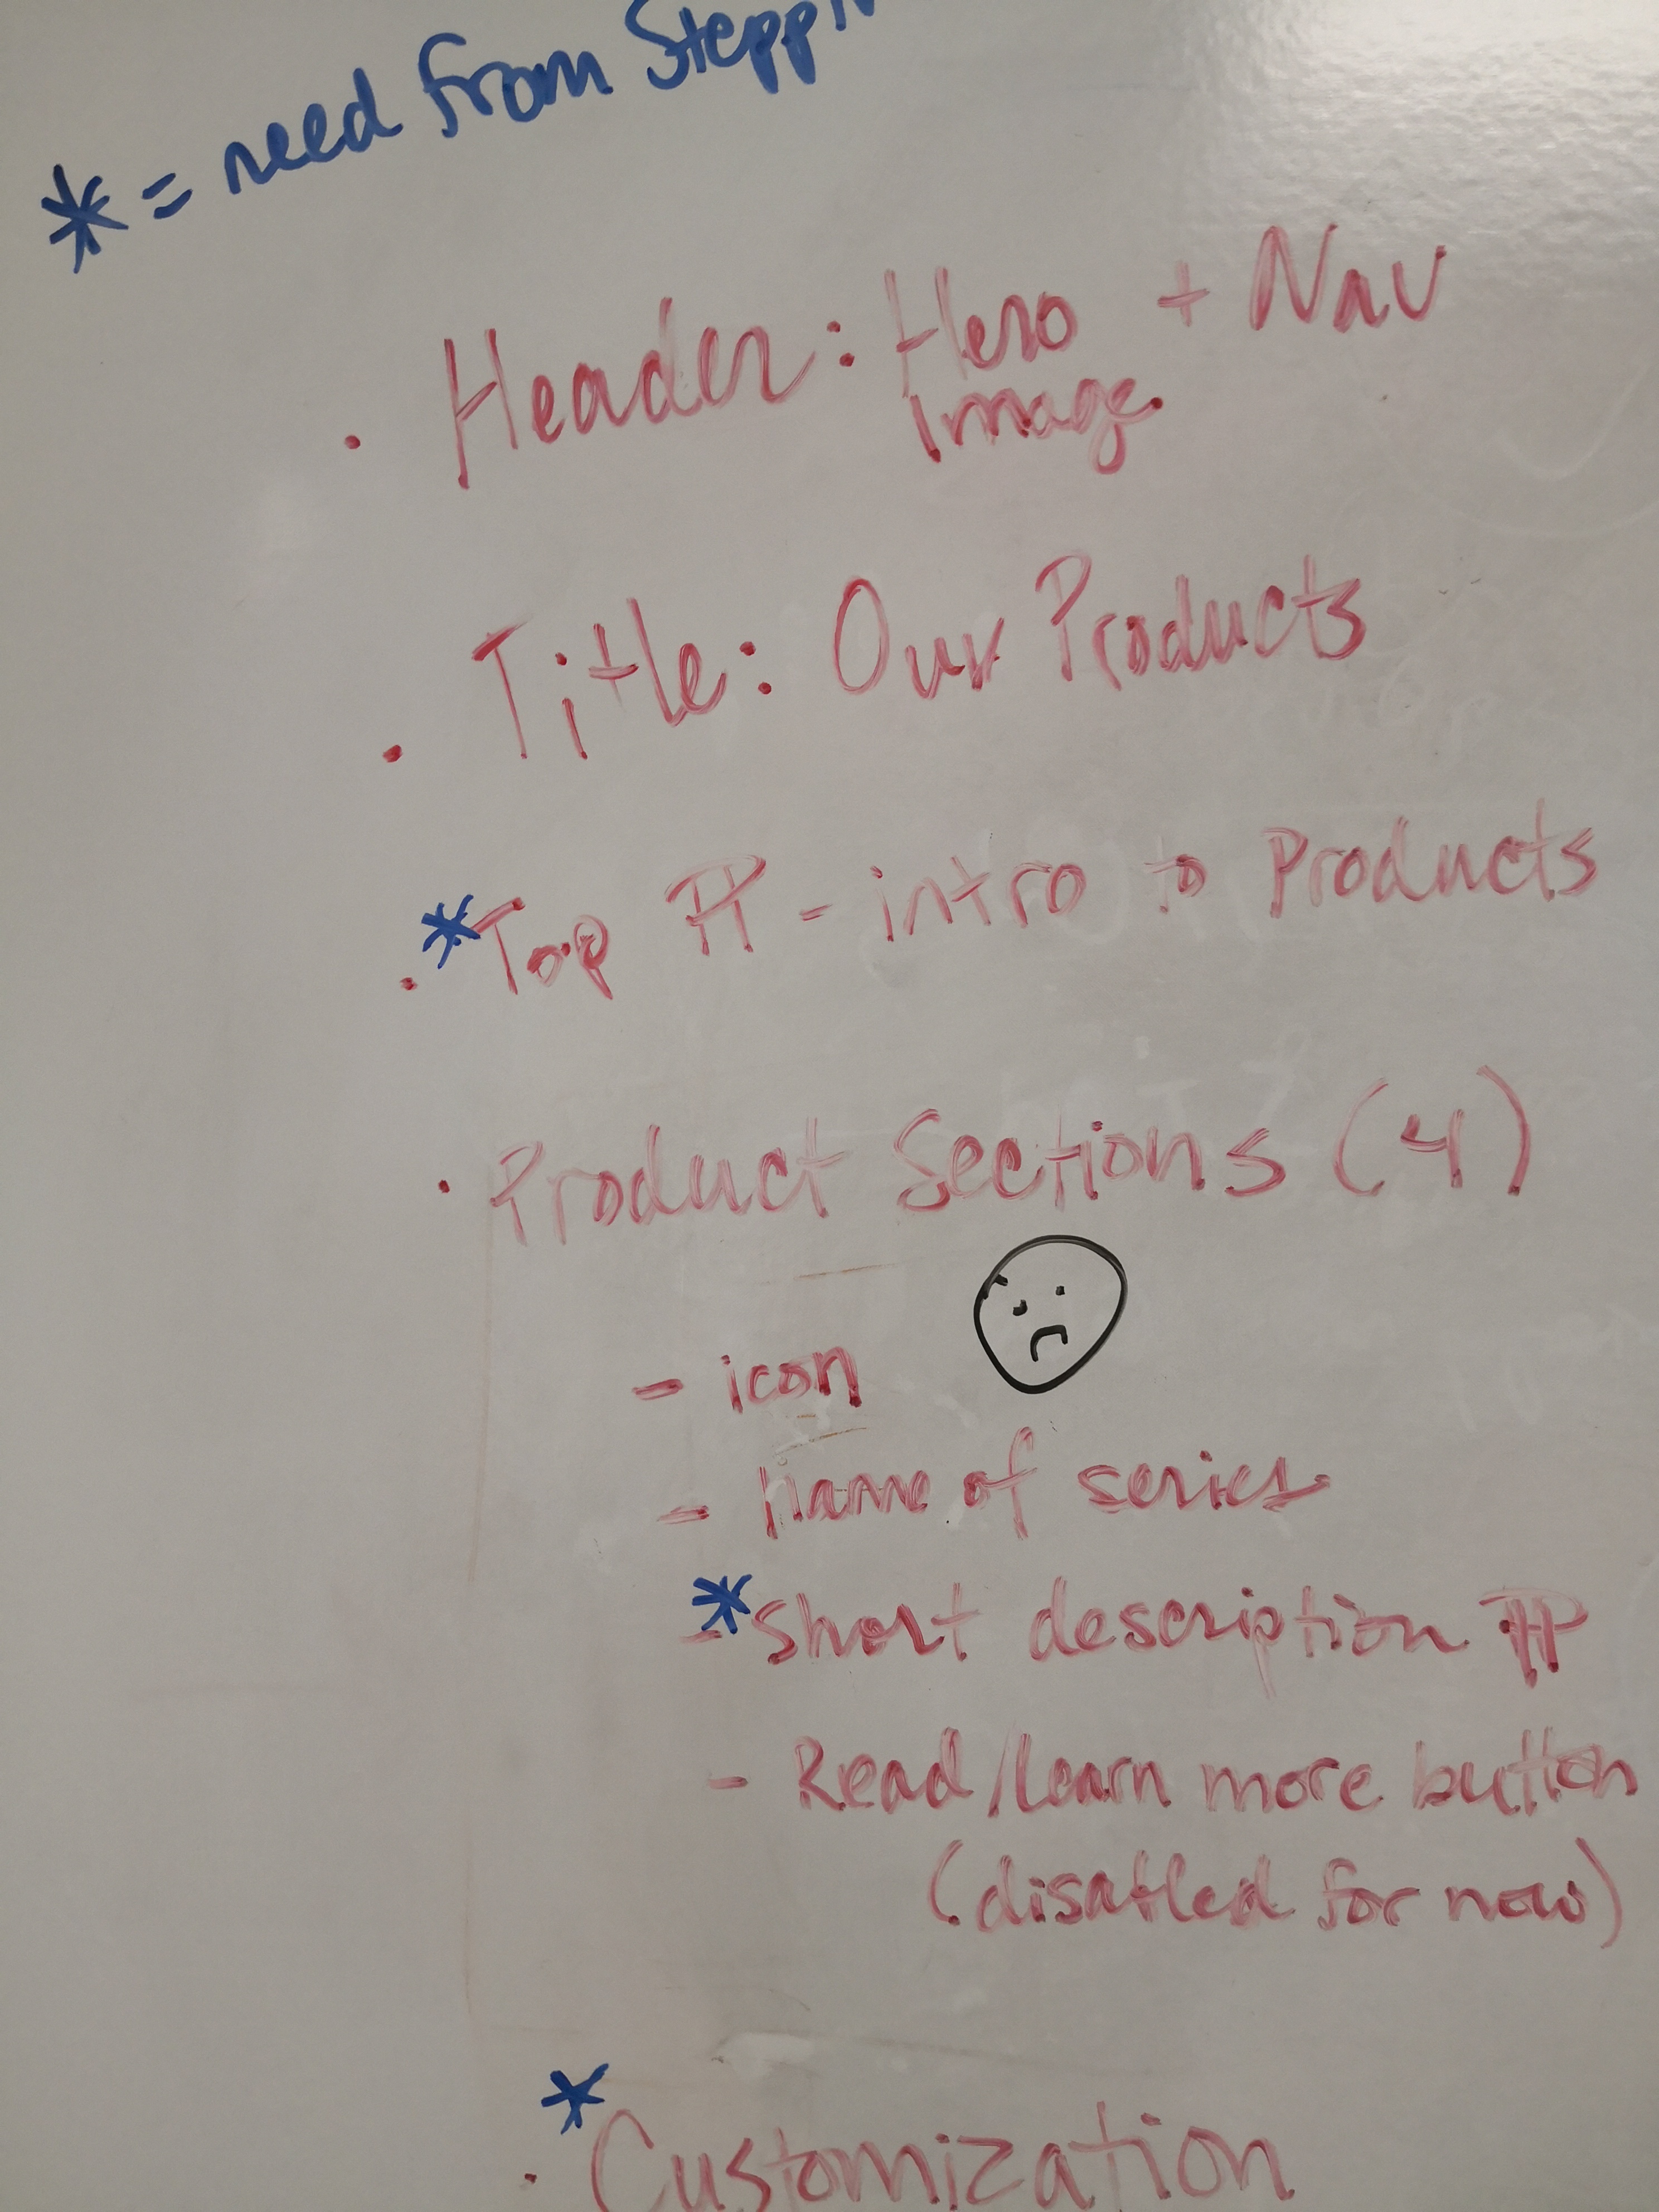 * = need from
• Header: Hero + Nav
Image
• Title: Our Products
• *Top ¶ - intro to Products
• Product Sections (4)
- icon
- name of series
- *Short description ¶
- Read/learn more button
(disabled for now)
• *Customization